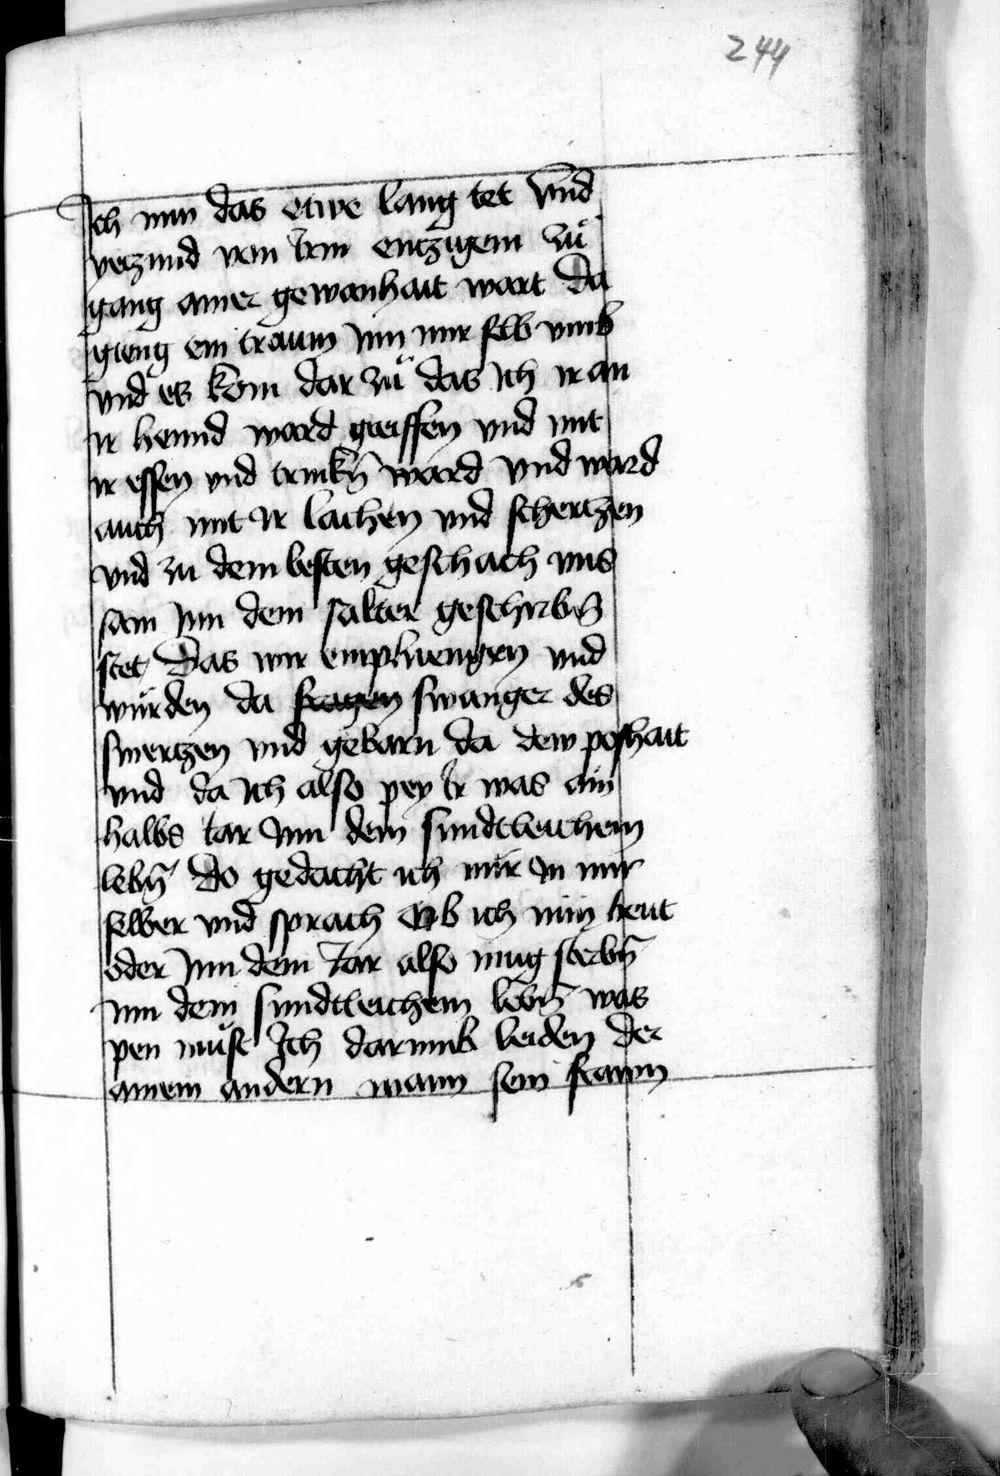 244
Ich nun das etwe lang tet Vnd
yeczund von Irm enczigem zuͦ
gang ainer gewonhait wart Da
gieng ein traum Inn mir selb vmb
vnd es kom dar zuͦ das Ich ir an
ir hennd ward greiffen vnd mit
ir essen vnd trinkn̄ ward Vnd ward
auch mit Ir lachen vnd schertzen
vnd zu dem besten geschach vns
sam Inn dem salter geschribn̄
stet Das wir emphiengen vnd
wurden da swanger des
smertzen vnd gebarn da dew poshait
vnd da Ich also pey Ir was ain
halbs Iar Inn dem sundtleichem
lebn̄ Do gedacht ich mir In mir
selber vnd sprach Ob ich nun heut
oder Inn dem Iar also mug sterbn̄
Inn dem sundtleichem lebn̄ was
pen muͦst Ich darumb leiden der
ainem andern mann sein frawn